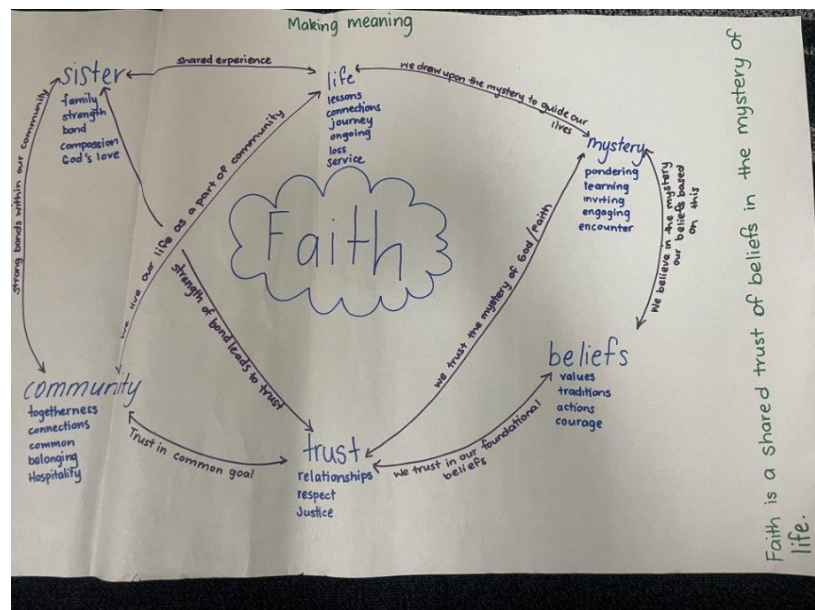 Making meaning
sister
family
strength
bond
compassion
God's love
shared experience
life
lessons
connections
journey
ongoing
loss
service
we draw upon the mystery to guide our
lives
mystery
pondering
learning
inviting
engaging
encounter
We believe in the mystery
our beliefs based
on this
strong bonds within our community
we live our life as a part of community
Faith
strength of bond leads to trust
we trust the mystery of God/Faith
beliefs
values
traditions
actions
courage
community
togetherness
connections
common
belonging
Hospitality
Trust in common goal
trust
relationships
respect
Justice
We trust in our foundational
beliefs
Faith is a shared trust of beliefs in the mystery of
life.